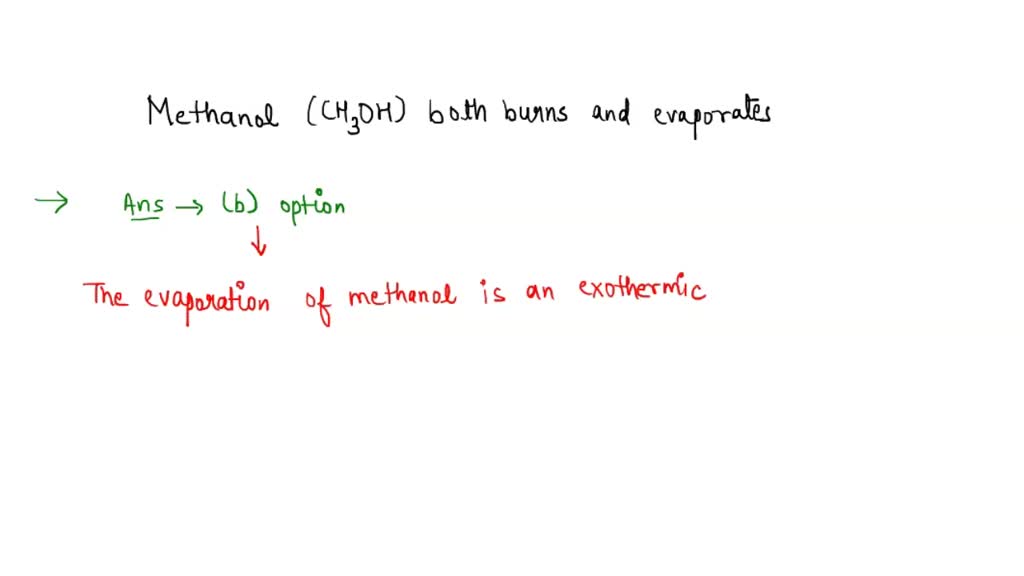 Methanol (CH₃OH) both burns and evaporates
→ Ans → (b) option
↓
The evaporation of methanol is an exothermic